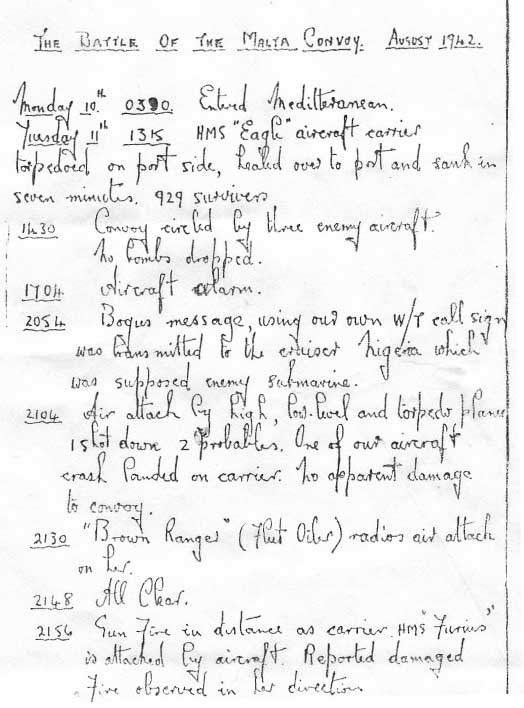 THE BATTLE OF THE MALTA CONVOY. AUGUST 1942.
Monday 10.th 0390. Entered Mediterranean.
Tuesday 11th 1315 HMS "Eagle" aircraft carrier
torpedoed on port side, healed over to port and sank in
seven minutes. 929 survivers
1430 Convoy circled by three enemy aircraft.
No bombs dropped.
1704 Aircraft alarm.
2054 Bogus message, using our own W/T call sign
was transmitted to the cruiser Nigeria which
was supposed enemy submarine.
2104 Air attack by high, low-level and torpedo planes
1 shot down 2 probables. One of our aircraft
crash landed on carrier. No apparent damage
to convoy.
2130 "Brown Ranges" (Fleet Oiler) radios air attack
on her.
2148 All Clear.
2156 Gun Fire in distance as carrier HMS "Furius"
is attacked by aircraft. Reported damaged
Fire observed in her direction